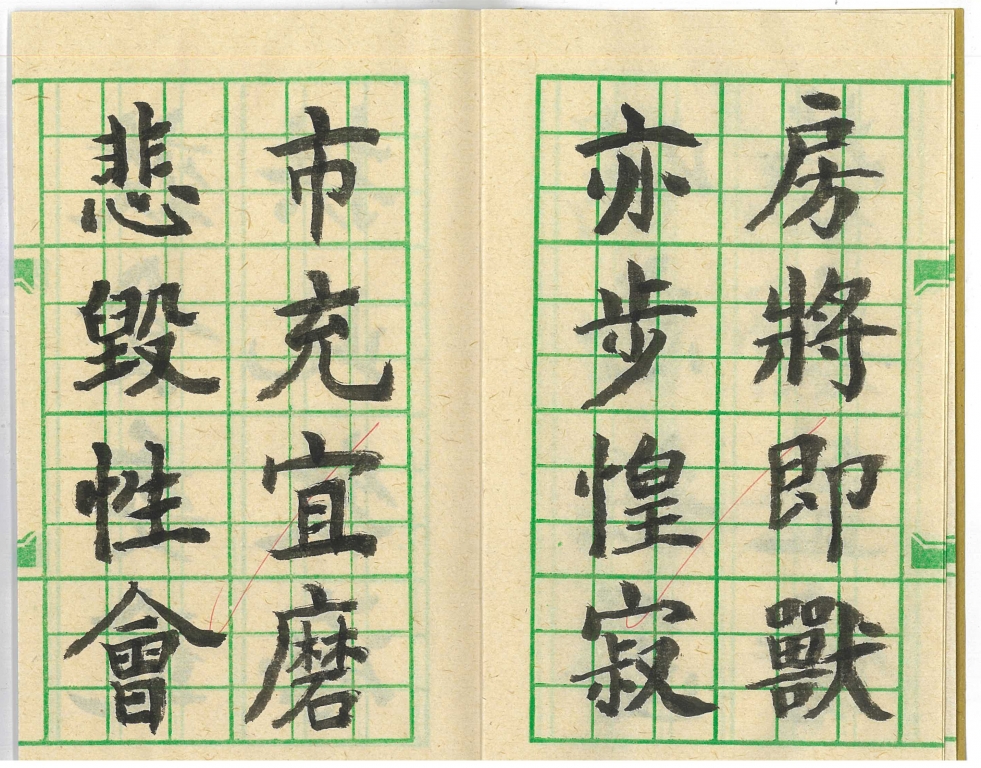 房將即獸
亦步惶寂
市充宜磨
悲毀性會